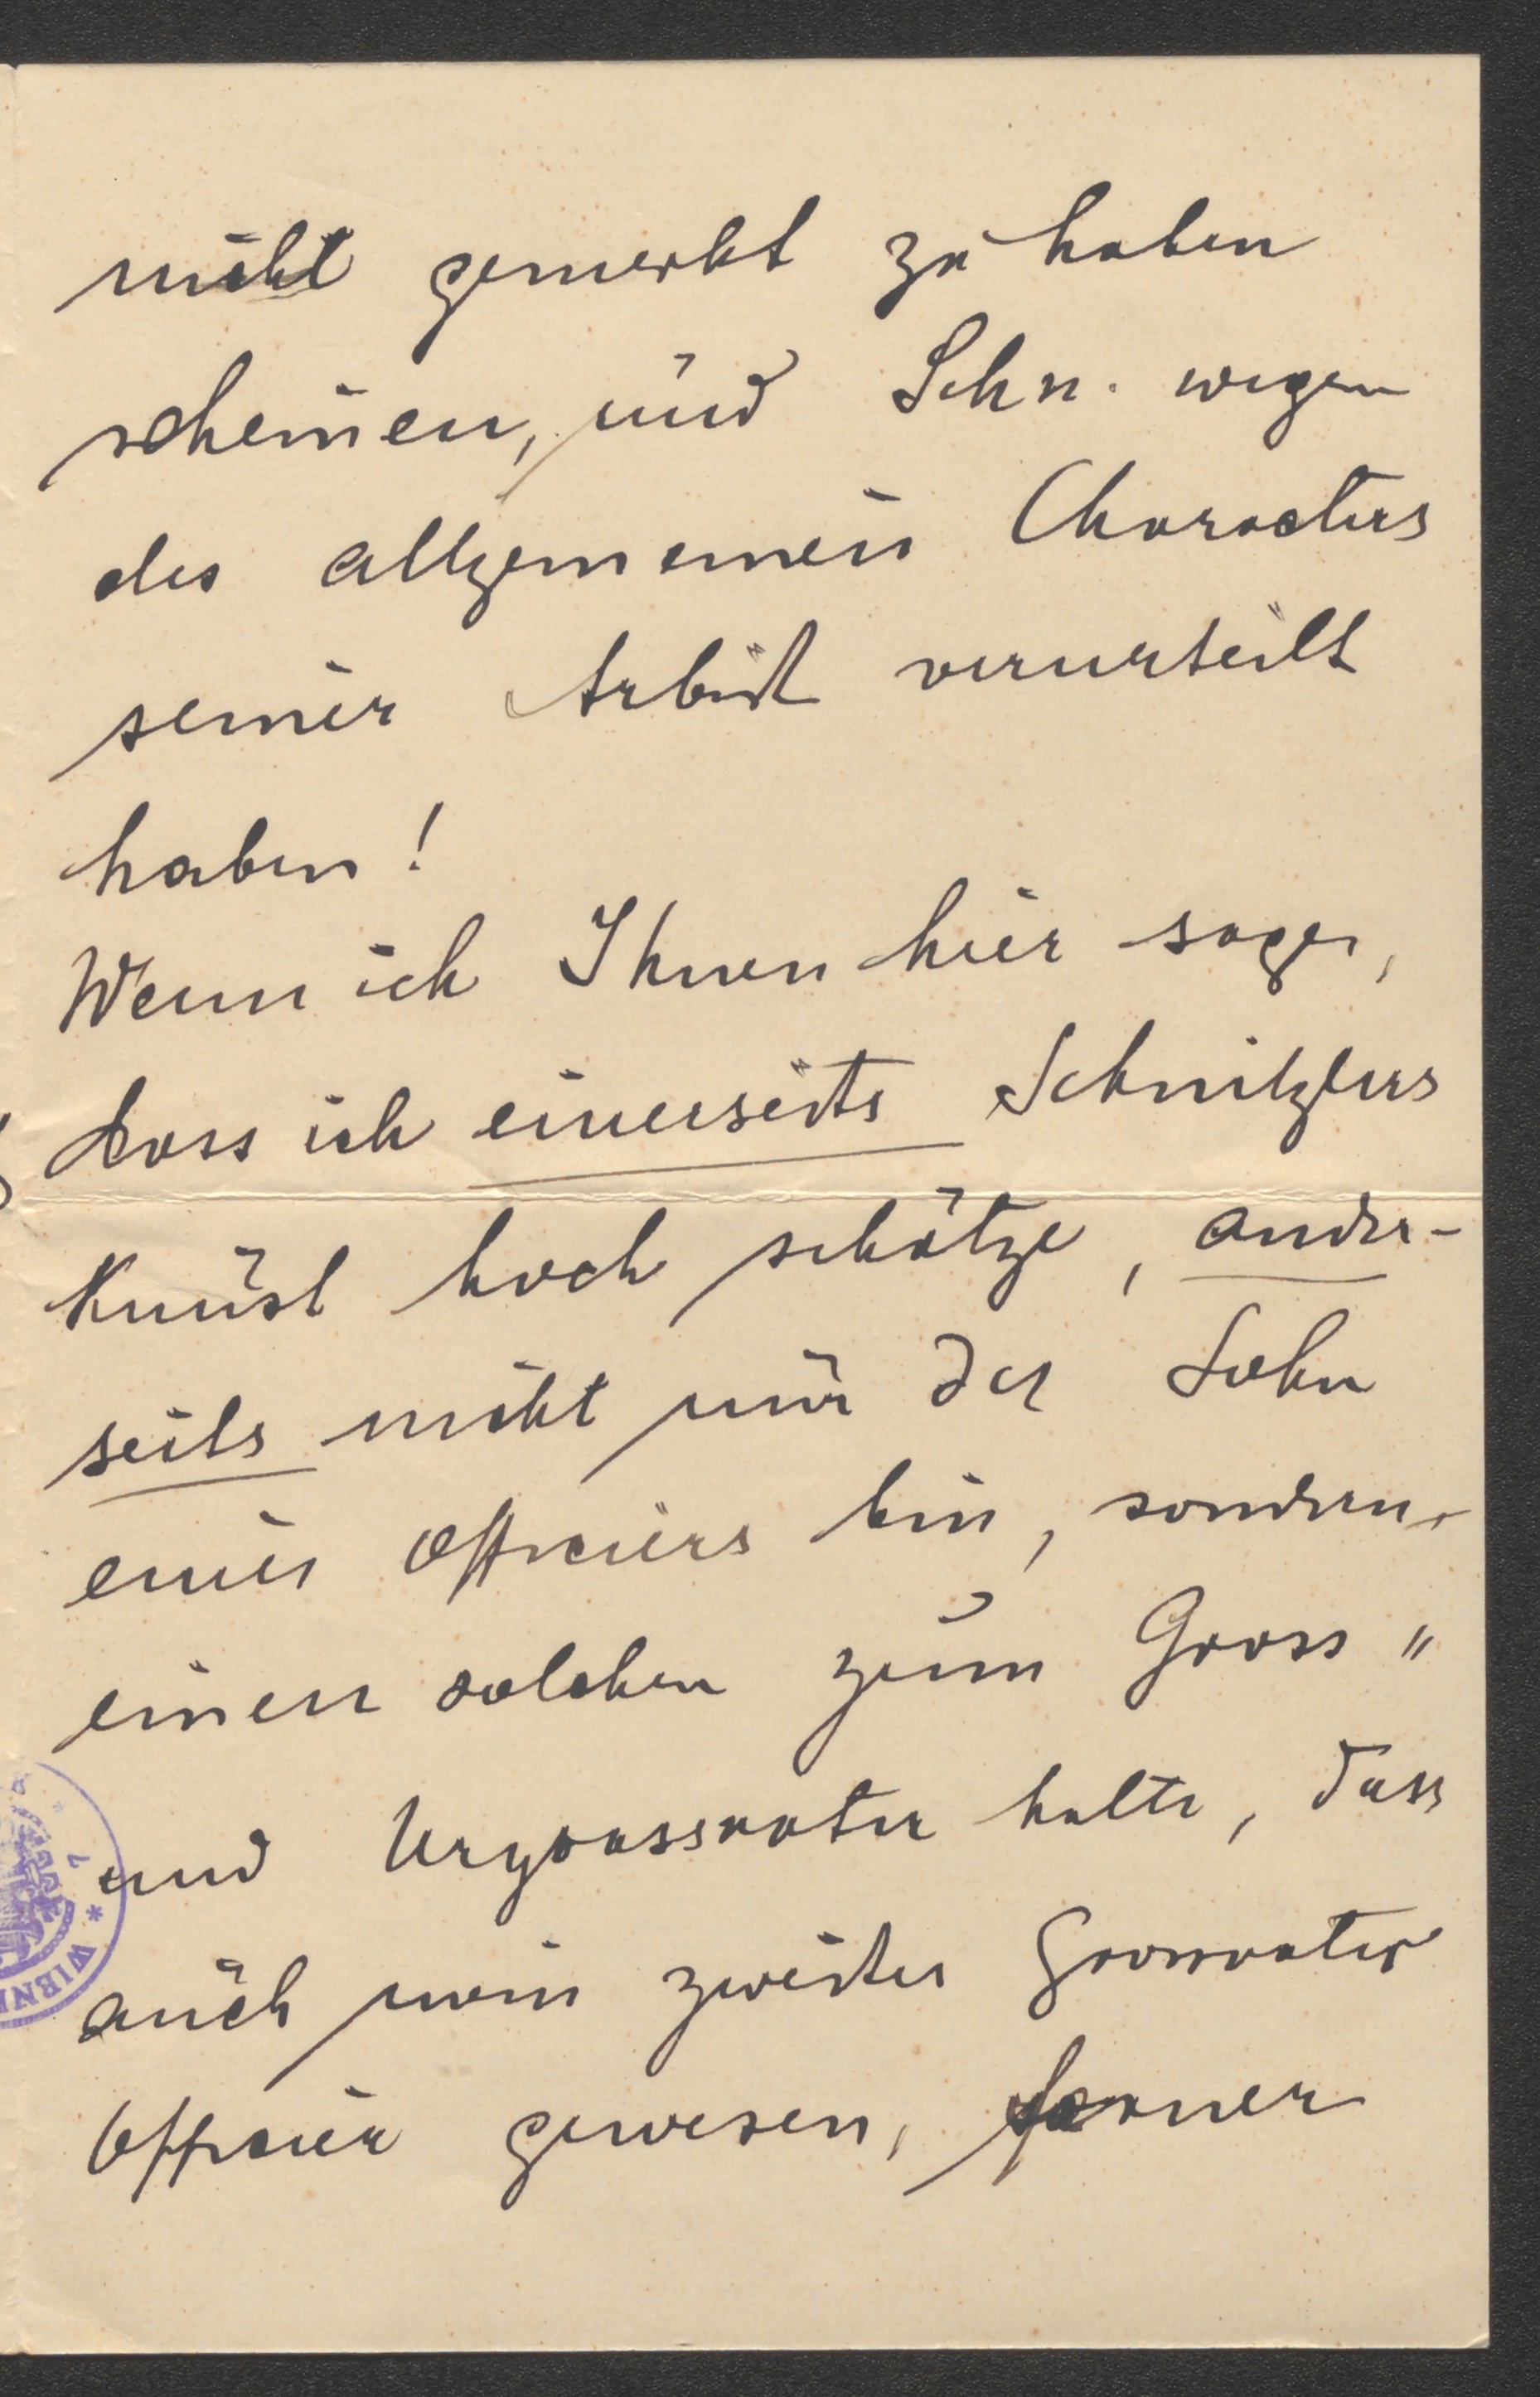 nicht gemerkt zu haben
scheinen, und Schn. wegen
des allgemeinen Characters
seiner Arbeit verurteilt
haben!
Wenn ich Ihnen hier sage,
dass ich einerseits Schnitzlers
Kunst hoch schätze, ander-
seits nicht nur der Sohn
eines Officiers bin, sondern
einen solchen zum Gross"
und Urgrossvater hatte, dass
auch mein zweiter Grossvater
Officier gewesen, ferner
* WIBN